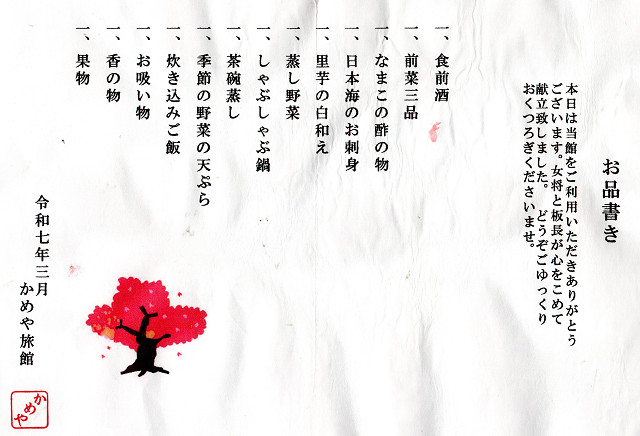 お品書き
本日は当館をご利用いただきありがとう
ございます。女将と板長が心をこめて
献立致しました。どうぞごゆっくり
おくつろぎくださいませ。
一、食前酒
一、前菜三品
一、なまこの酢の物
一、日本海のお刺身
一、里芋の白和え
一、蒸し野菜
一、しゃぶしゃぶ鍋
一、茶碗蒸し
一、季節の野菜の天ぷら
一、炊き込みご飯
一、お吸い物
一、香の物
一、果物
令和七年三月
かめや旅館
かめや